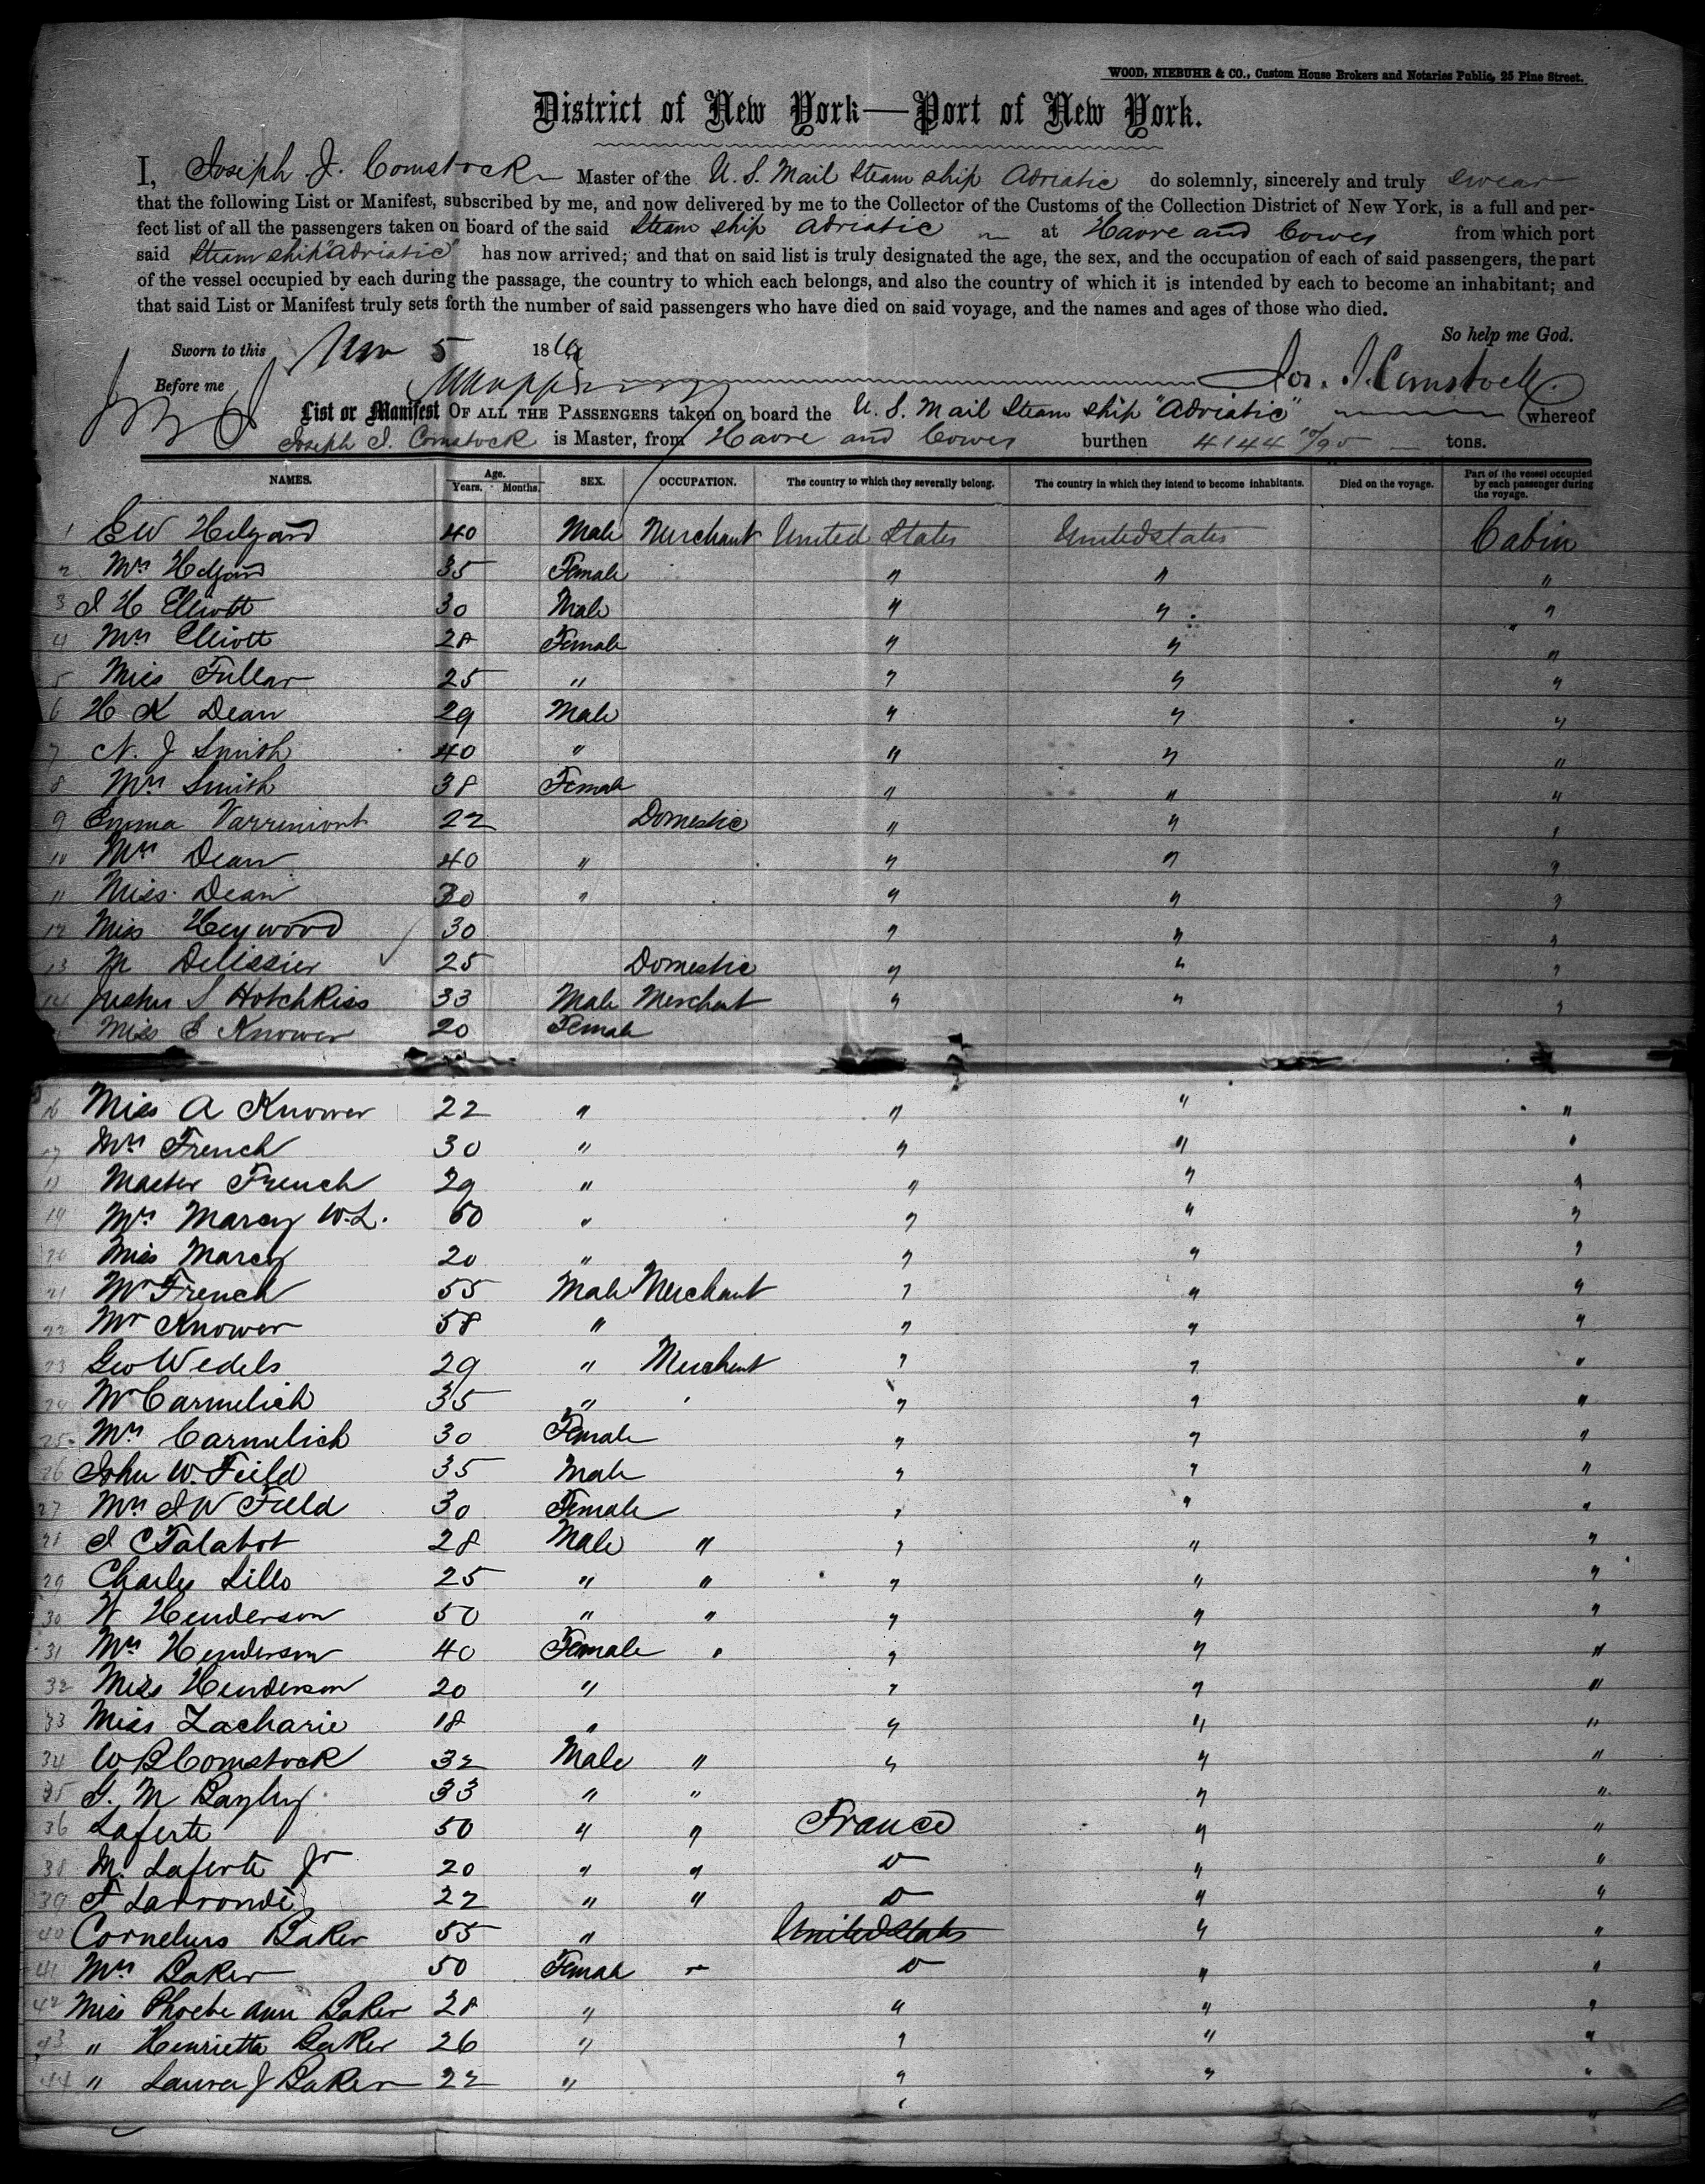 WOOD, NIEBUHR & CO., Custom House Brokers and Notaries Public, 25 Pine Street.
District of New York—Port of New York.
I, Joseph J. Comstock Master of the U. S. Mail Steam ship Adriatic do solemnly, sincerely and truly swear
that the following List or Manifest, subscribed by me, and now delivered by me to the Collector of the Customs of the Collection District of New York, is a full and per-
fect list of all the passengers taken on board of the said Steam ship Adriatic at Havre and Cowes from which port
said Steam ship "Adriatic" has now arrived; and that on said list is truly designated the age, the sex, and the occupation of each of said passengers, the part
of the vessel occupied by each during the passage, the country to which each belongs, and also the country of which it is intended by each to become an inhabitant; and
that said List or Manifest truly sets forth the number of said passengers who have died on said voyage, and the names and ages of those who died.
So help me God.
Sworn to this 5 186
Before me Jos. J. Comstock
List or Manifest OF ALL THE PASSENGERS taken on board the U. S. Mail Steam ship "Adriatic" whereof
Joseph J. Comstock is Master, from Havre and Cowes burthen 4144 10/95 tons.
NAMES. Age. Years. Months. SEX. OCCUPATION. The country to which they severally belong. The country in which they intend to become inhabitants. Died on the voyage. Part of the vessel occupied by each passenger during the voyage.
1 E W Hilgard 40 Male Merchant United States United States Cabin
2 Mrs Hilgard 35 Female " " "
3 J H Elliott 30 Male " " "
4 Mrs Elliott 28 Female " " "
5 Miss Fullar 25 " " " "
6 H K Dean 29 Male " " "
7 N. J Smith 40 " " " "
8 Mrs Smith 38 Female " " "
9 Emma Varrimont 22 Domestic " " "
10 Mrs Dean 40 " " " "
11 Miss Dean 30 " " " "
12 Miss Heywood 30 " " "
13 M Delissier 25 Domestic " " "
14 Justus S Hotchkiss 33 Male Merchant " " "
Miss E Knower 20 Female
16 Miss A Knower 22 " " " "
17 Mrs French 30 " " " "
18 Master French 29 " " " "
19 Mrs Marcy W. L. 60 " " " "
20 Miss Marcy 20 " " " "
21 Mr French 55 Male Merchant " " "
22 Mr Knower 58 " " " "
23 Geo Wedels 29 " Merchant " " "
24 Mr Carmelich 35 " " " " "
25 Mrs Carmelich 30 Female " " "
26 John W. Feild 35 Male " " "
27 Mrs J W Field 30 Female " " "
28 J C Talabot 28 Male " " " "
29 Charles Lillo 25 " " " " "
30 W Henderson 50 " " " " "
31 Mrs Henderson 40 Female " " " "
32 Miss Henderson 20 " " " "
33 Miss Zacharie 18 " " " "
34 W B Comstock 32 Male " " " "
35 G. M Bayley 33 " " " "
36 Laferte 50 " " France " "
38 M. Laferte Jr 20 " " D " "
39 F Ladronde 22 " " D " "
40 Cornelius Baker 55 " United States " "
41 Mrs Baker 50 Female D " "
42 Miss Phoebe Ann Baker 28 " " " "
43 " Henrietta Baker 26 " " " "
44 " Laura J Baker 22 " " " "